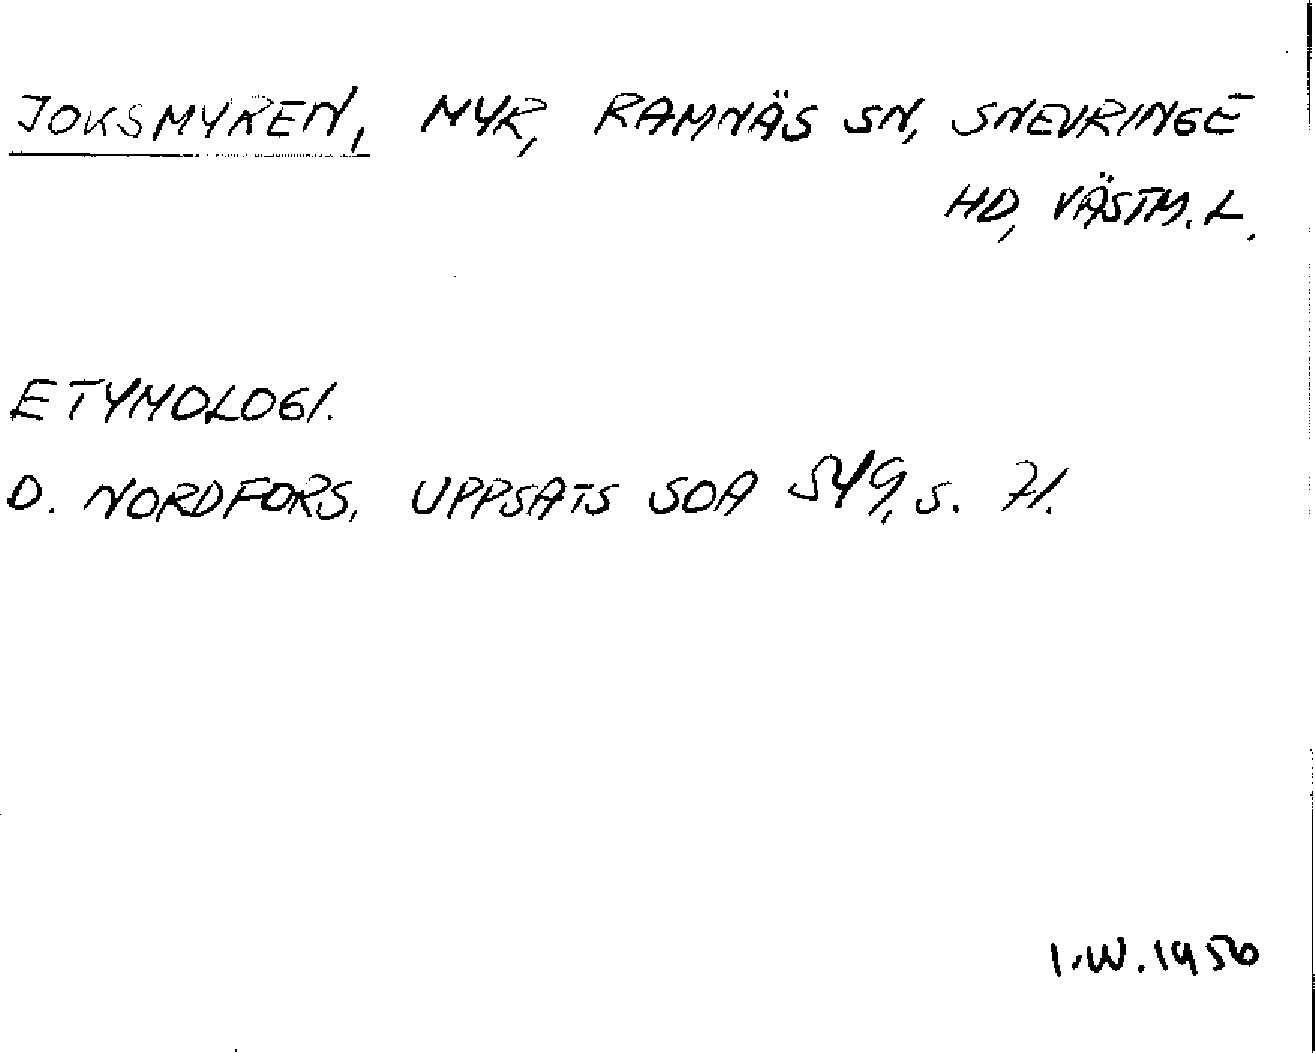 JOKSMYREN, MYR, RAMNÄS SN, SNEVRINGE
HD, VÄSTM. L.
ETYMOLOGI.
D. NORDFORS, UPPSATS SOA 549, S. 71.
I.W. 1956